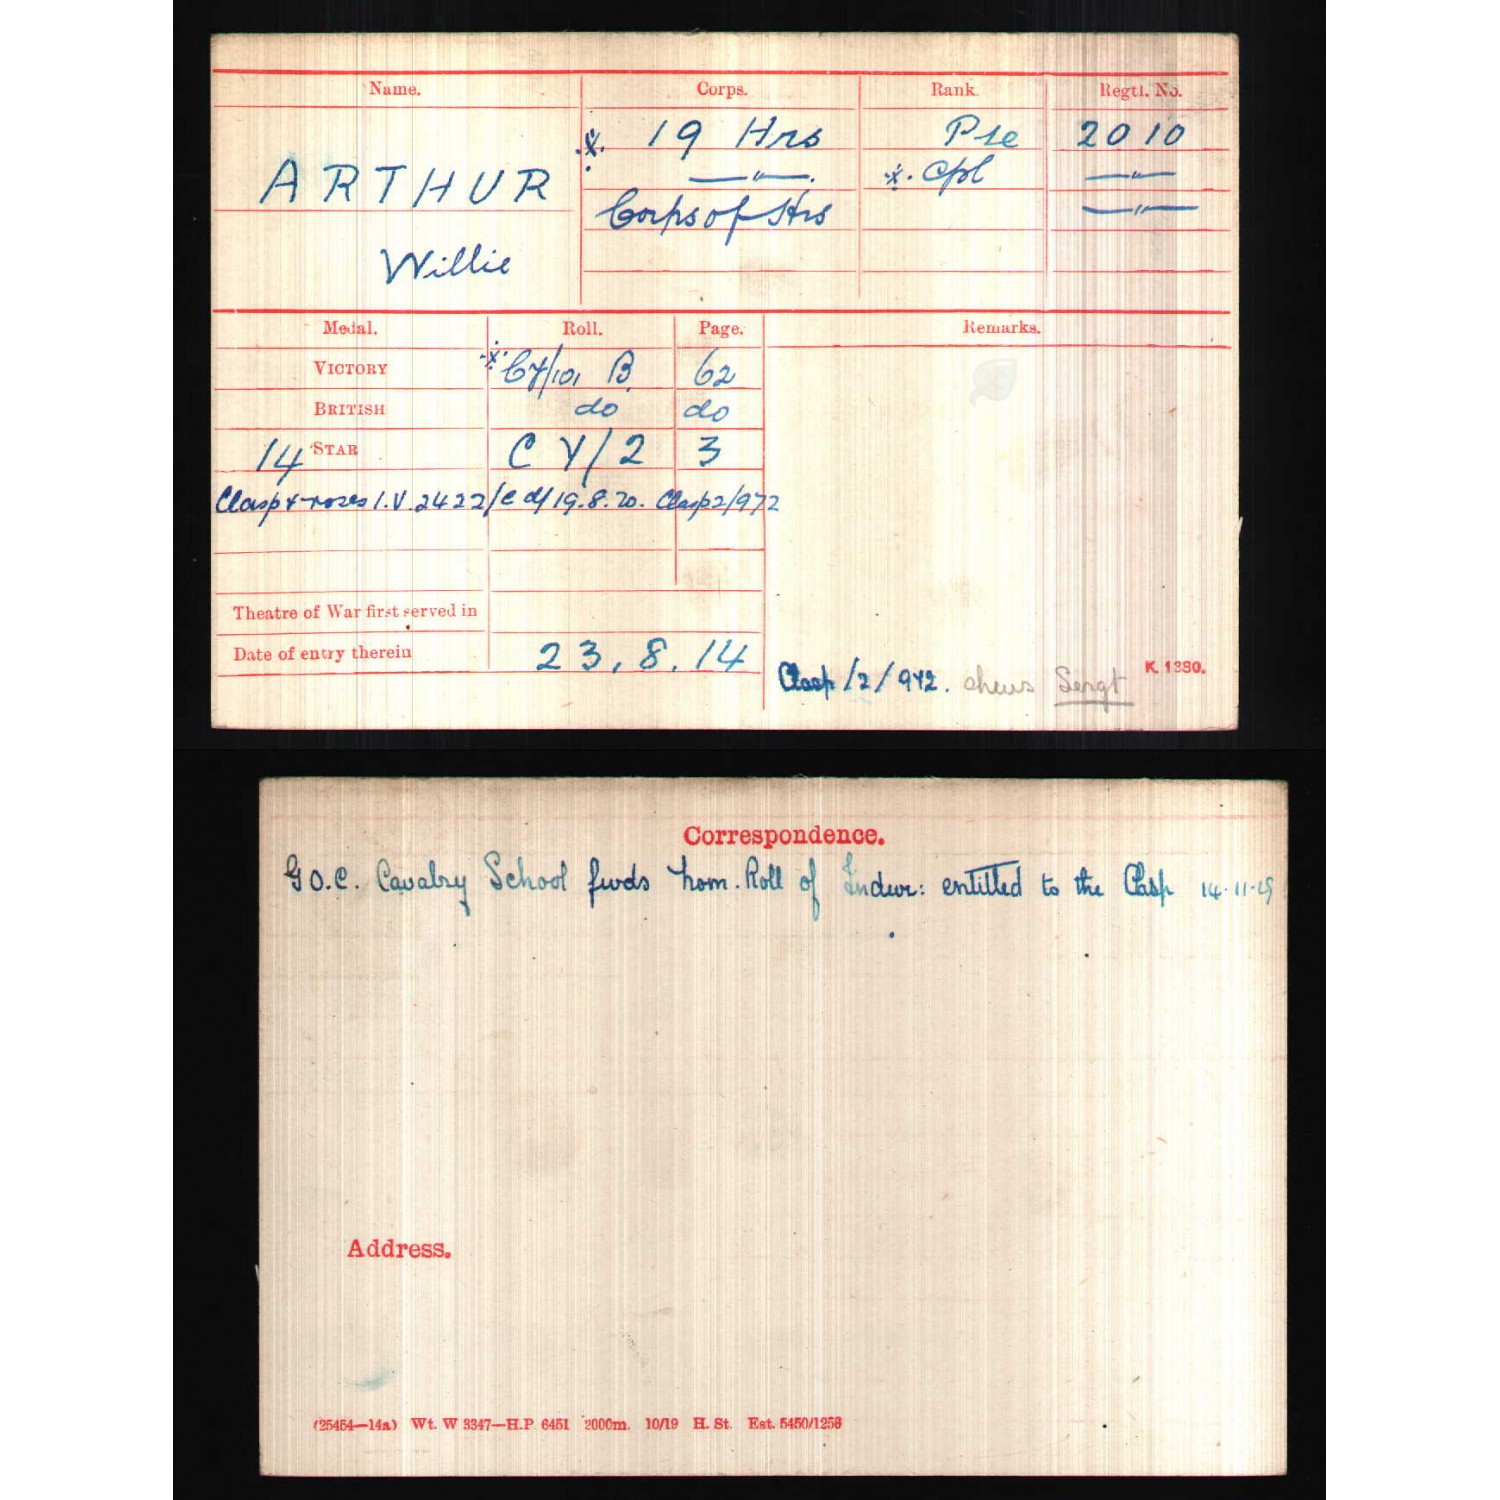 Name. Corps. Rank. Regtl. No.
19 Hrs Pte 2010
ARTHUR —"—. Cpl —"—
Corps of Hrs —"—
Willie
Medal. Roll. Page. Remarks.
VICTORY Cy/101 B 62
BRITISH do do
14 STAR CY/2 3
Clasp & roses I.V. 2422/E d/ 19.8.20. Clasp 2/972
Theatre of War first served in
Date of entry therein 23.8.14
Clasp /2/972. shews Sergt K. 1380.
Correspondence.
G.O.C. Cavalry School fwds nom. Roll of Indivi: entitled to the Clasp 14.11.19
Address.
(25454—14a) Wt. W 3347—H.P. 6451 2000m. 10/19 H. St. Est. 5450/1256